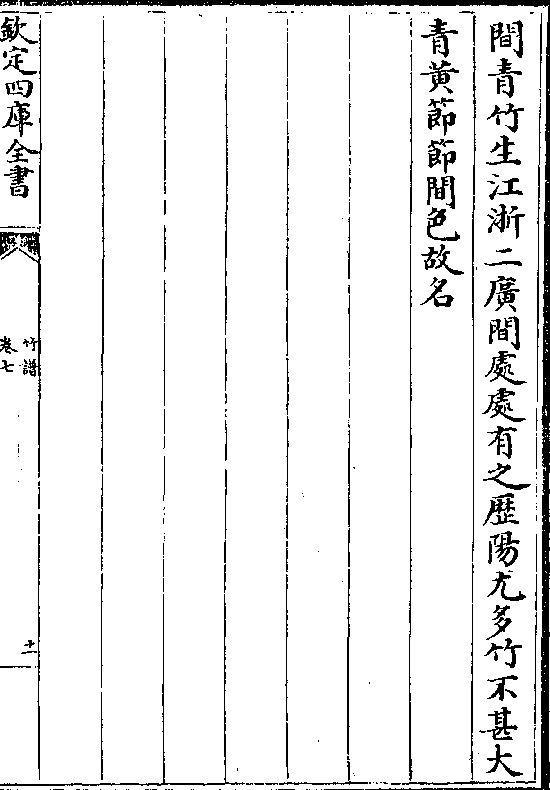 間青竹生江浙二廣間處處有之歴陽尤多竹不甚大
青黄節節間色故名
欽定四庫全書
竹譜
卷七
十一